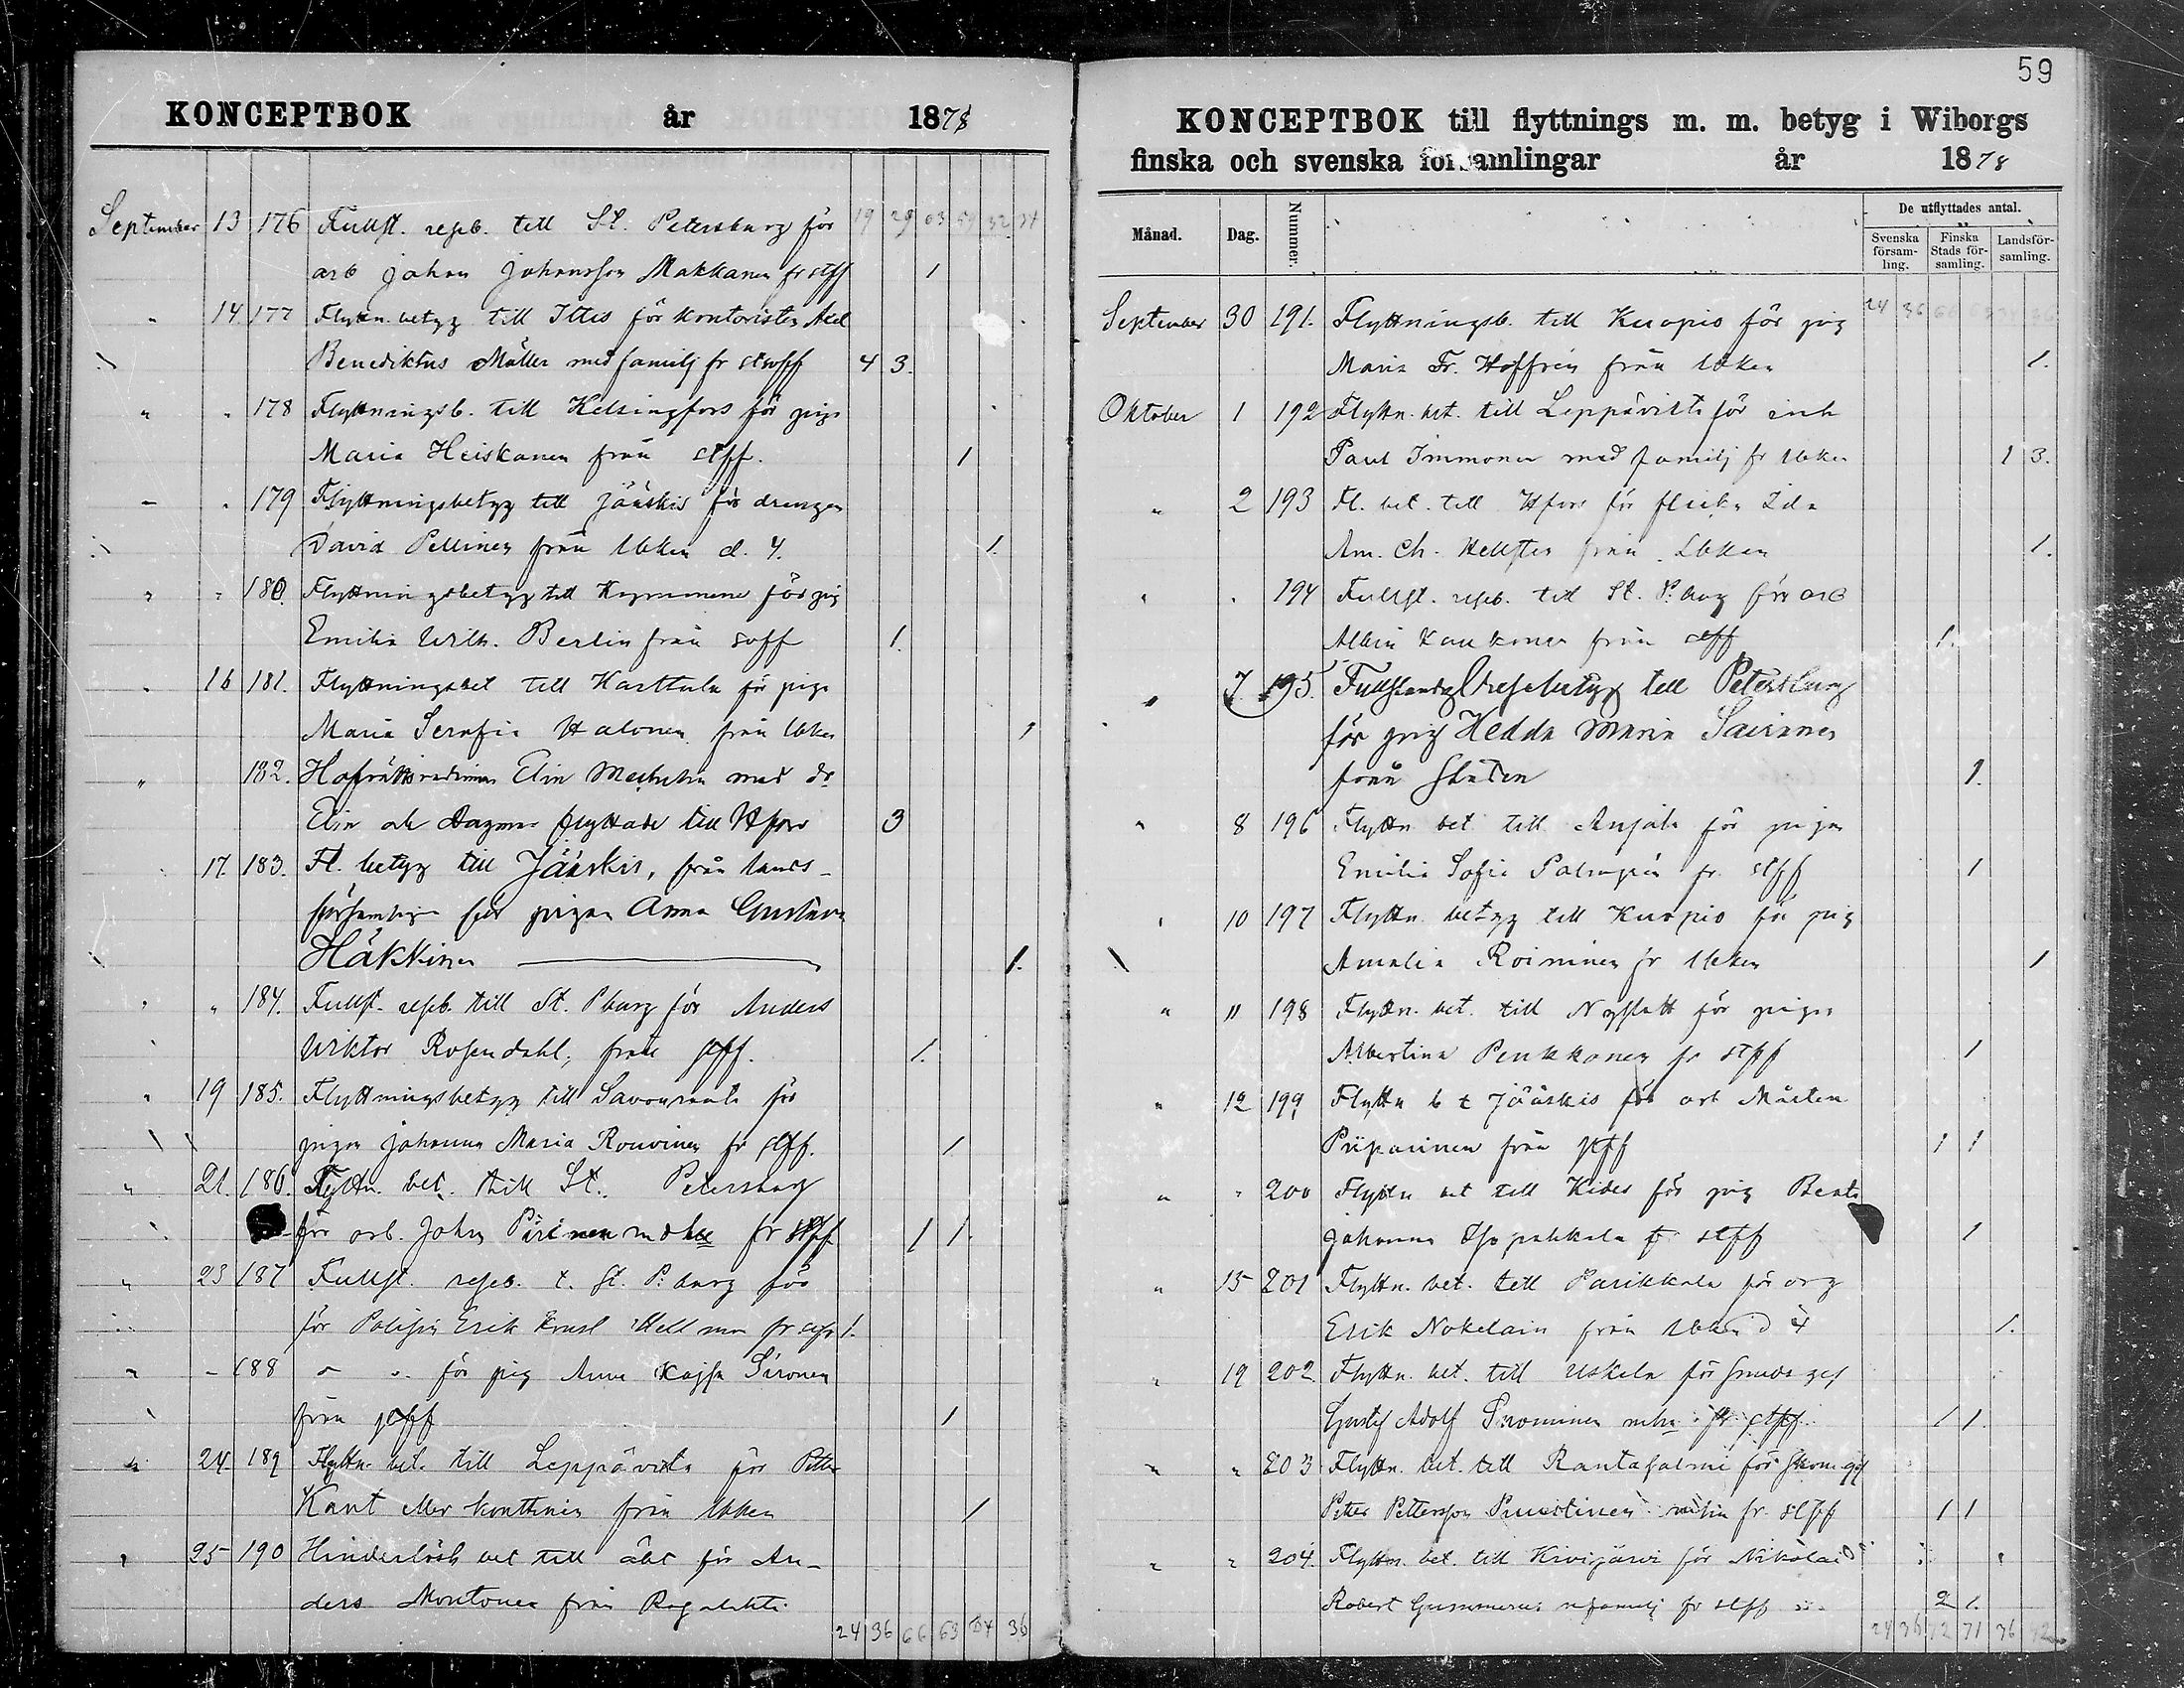 KONCEPTBOK år 1878
September 13 176 Fullst. reseb. till St. Petersburg för 19 29 63 59 32 34
arb Johan Johansson Makkanen fr stff 1
" 14 177 Flyttn. betyg till Ittis för kontoristen Axel
Benediktus Möller med familj fr 4 3.
" " 178 Flyttningsb. till Helsingfors för pigan
Maria Heiskanen från stff. 1
" " 179 Flyttningsbetyg till Jääskis för drengen
David Pellinen från d. 4. 1.
" " 180. Flyttningsbetyg till Kymmene för pig
Emilia Wilh. Berlin från soff 1.
" 16 181. Flyttningsbet till Karttula för pigan
Maria Serafia Halonen från 1
" 182. Hofrättsrådinnan Elin med dr
Elin och Dagmar flyttade till Hfors 3
17. 183. Fl. betyg till Jääskis, från lands-
församlingen för pigan Anna Gustava
Häkkinen 1.
" " 184. Fullst. reseb. till St. Pburg för Anders
Wiktor Rosendahl, från stff. 1.
" 19 185. Flyttningsbetyg till Savonranta för
pigan Johanna Maria Rouvinen fr stff. 1
" 21. 186. Flyttn. bet. till St. Petersburg
för arb. Johan Piirinen m hu fr stff 1 1.
" 23 187 Fullst. reseb. t. St. P:burg för
för Polisen Erik Hellman fr 1.
" - 188 " " för pig Anna Kajsa Sironen
från stff 1
" 24. 189 Flyttn. bet. till Leppävirta för Petter
Kant eller Konttinen från 1
" 25 190 Hinderlösh bet till äkt för An-
ders Moutonen från
24 36 66 63 34 36
59
KONCEPTBOK till flyttnings m. m. betyg i Wiborgs
finska och svenska församlingar år 1878
Månad. Dag. Nummer. De utflyttades antal.
Svenska försam-ling. Finska Stads för-samling. Landsför-samling.
September 30 191. Flyttningsb. till Kuopio för pig 24 36 66 63 34 36
Maria Fr. Hoffrén från 1.
Oktober 1 192 Flyttn. bet. till Leppävirta för inh
Paul Immonen med familj fr 1 3.
" 2 193 Fl. bet. till Hfors för flickan Ida
Am. Ch. Hellsten från 1.
" " 194 Fullst. reseb. till St. P:burg för arb
Albin Kaukonen från stff 1.
" 7. 195. Fullständigt resebetyg till Petersburg
för pig Hedda Maria Sairanen
från Staden 1.
" 8 196 Flyttn. bet till Anjala för pigan
Emilia Sofia Palmgrén fr. stff 1
" 10 197 Flyttn. betyg till Kuopio för pig
Amalia Roininen fr 1
" 11 198 Flyttn. bet. till Nyslott för pigan
Albertina Penkkonen fr stff 1
" 12 199 Flyttn b t Jääskis för arb Mårten
Piiparinen från stff 1 1
" " 200 Flyttn bet till Kides för pig Beata
Johanna fr stff 1
" 15 201 Flyttn. bet. till Parikkala för drg
Erik Nokelain från d 4 1.
" 19 202. Flyttn. bet. till Uskela för smedsges
Gustaf Adolf Suominen mhu fr stff. 1 1.
" " 203 Flyttn. bet. till Rantasalmi för skom.ges
Petter Pettersson Puustinen m hu fr. stff 1 1
" " 204. Flyttn. bet. till Kivijärvi för Nikolai
Robert Gummerus m familj fr stff 2 1.
24 36 72 71 36 42